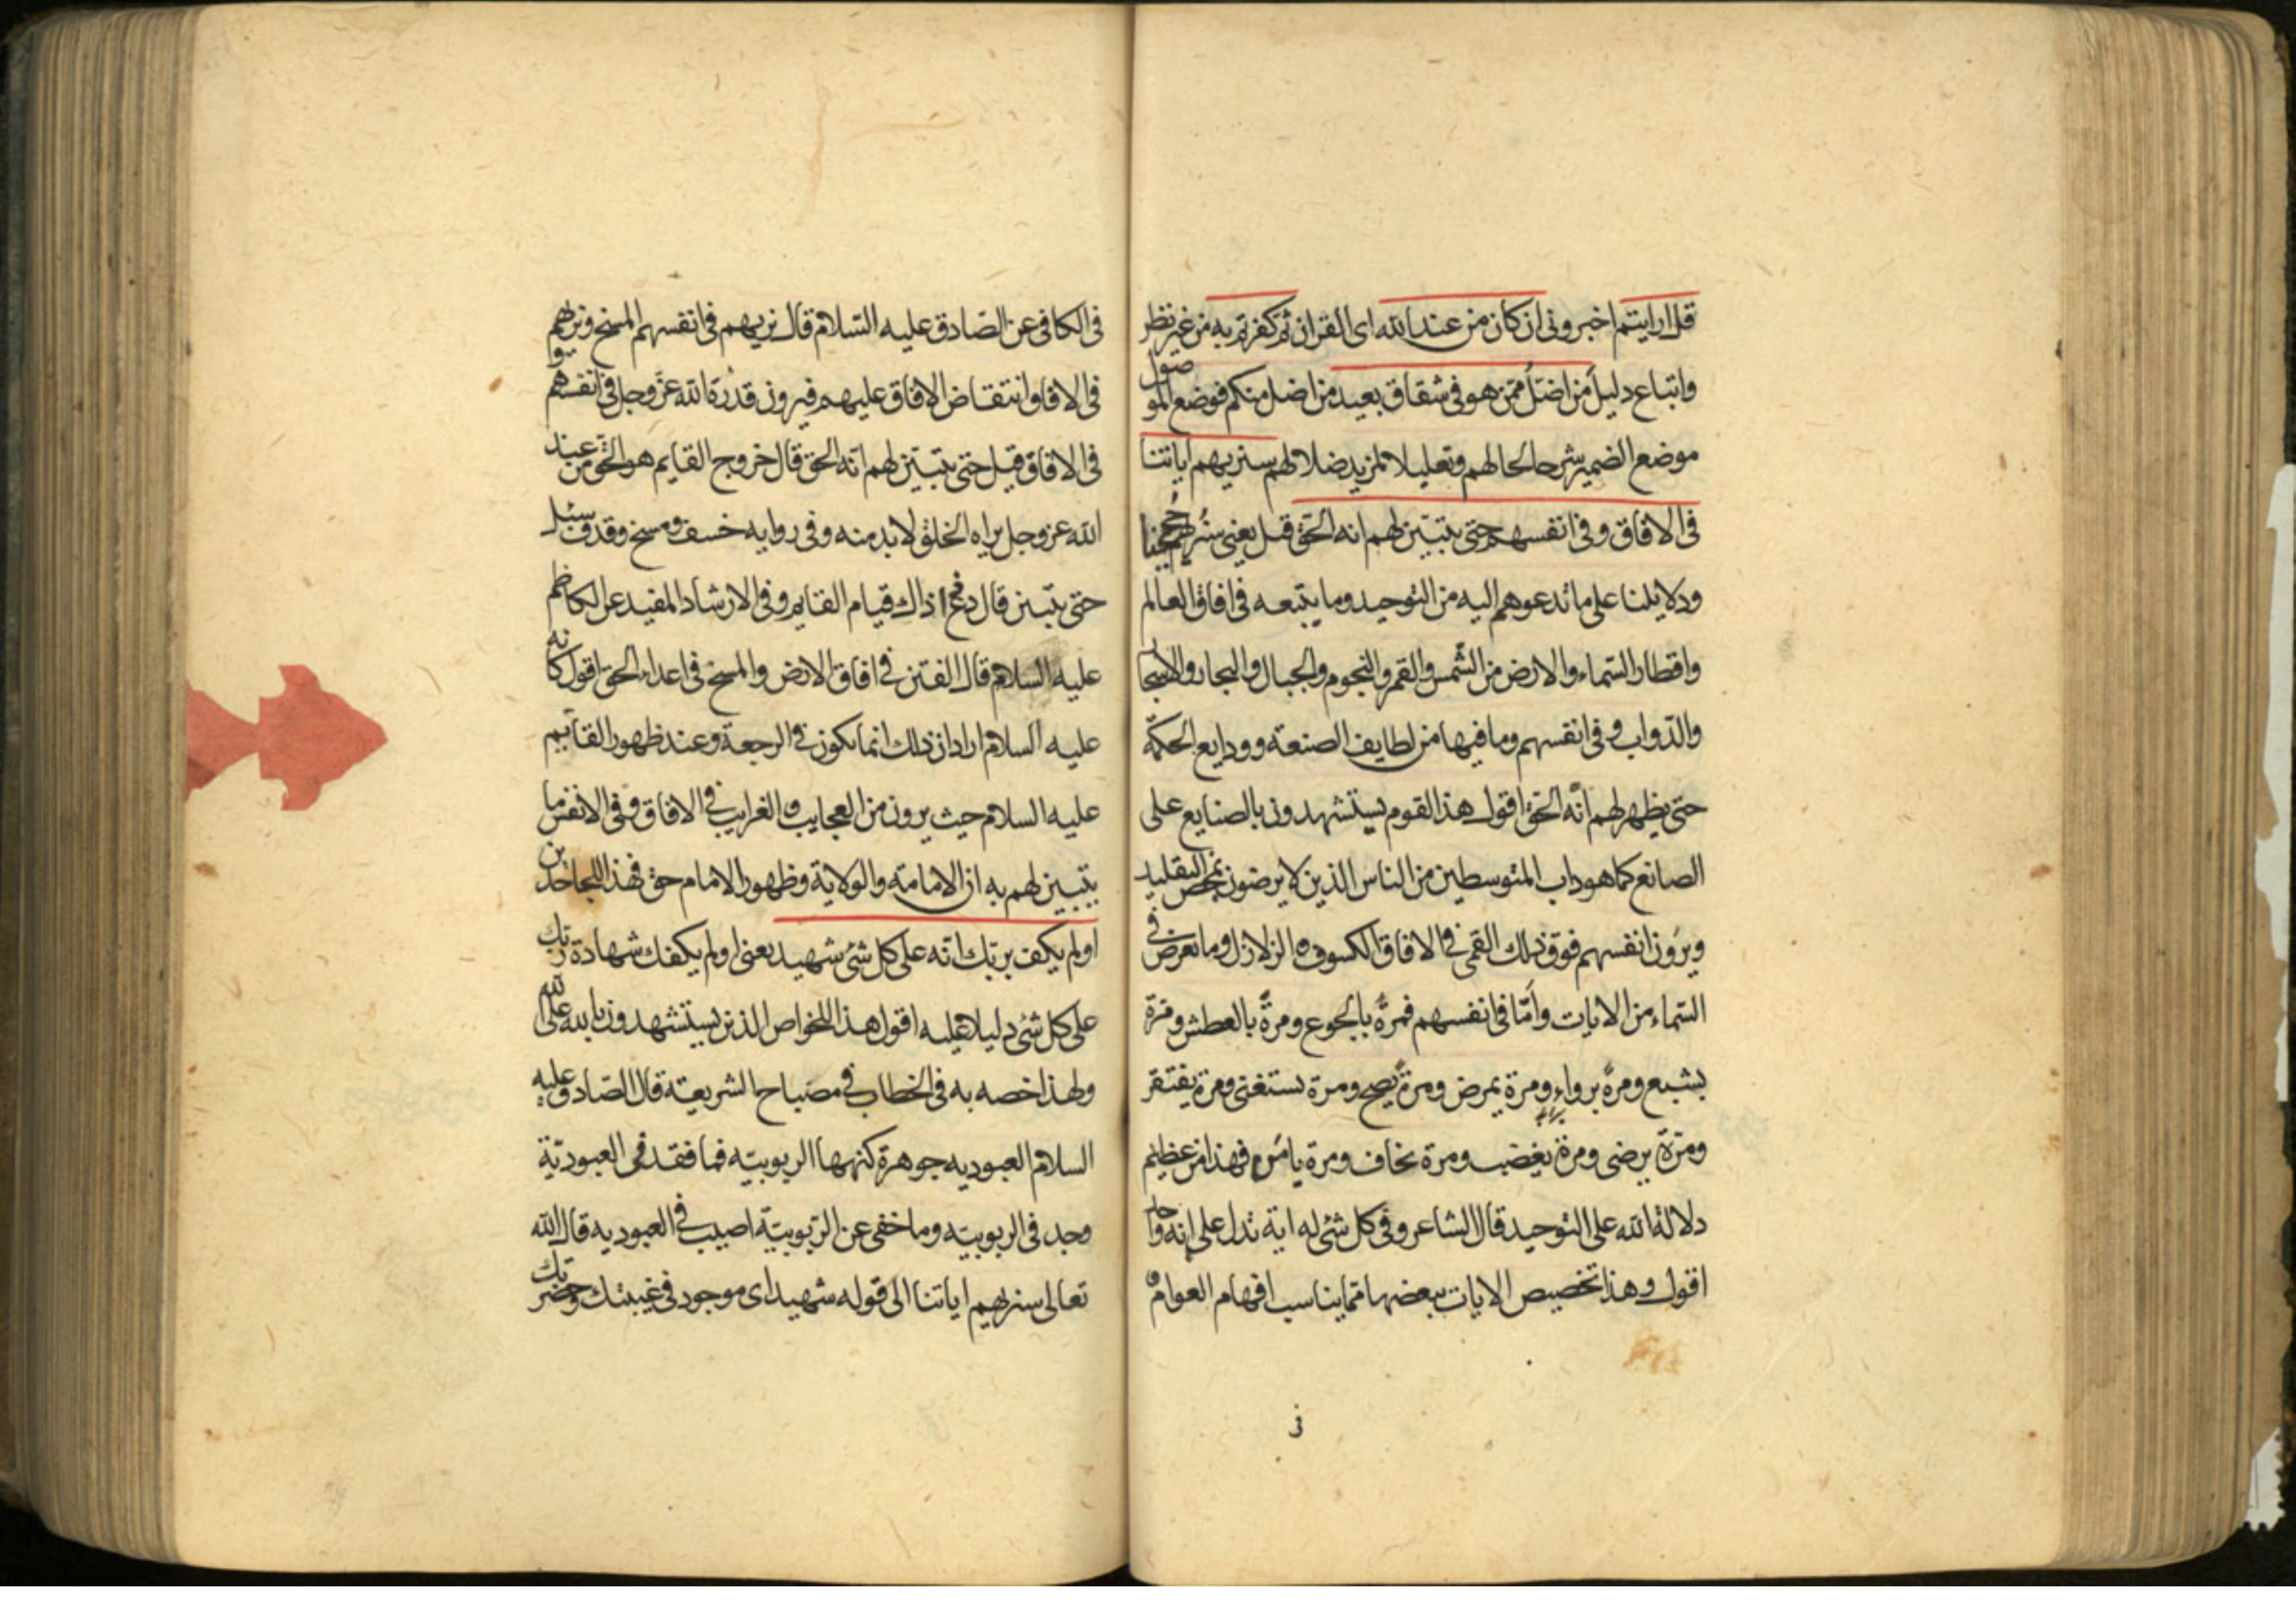 قل ارايتم اخبرونى ان كان من عند الله اى القران ثم كفرتم به من غير نظر
واتباع دليل من اضل ممن هو فى شقاق بعيد من اضل منكم فوضع الموصول
موضع الضمير شرحا لحالهم وتعليلا لمزيد ضلالهم سنريهم اياتنا
فى الافاق وفى انفسهم حتى يتبين لهم انه الحق قيل يعنى سنريهم حججنا
ودلايلنا على ما ندعوهم اليه من التوحيد وما يتبعه فى افاق العالم
واقطار السماء والارض من الشمس والقمر والنجوم والجبال والبحار والاشجار
والدواب وفى انفسهم وما فيها من لطايف الصنعة وودايع الحكمة
حتى يظهر لهم انه الحق اقول هذا القوم يستشهدون بالصنايع على
الصانع كما هو داب المتوسطين من الناس الذين لا يرضون بمحض التقليد
ويرون انفسهم فوق ذلك القمى فى الافاق الكسوف والزلازل وما يعرض فى
السماء من الايات وامّا فى انفسهم فمرّة بالجوع ومرة بالعطش ومرة
يشبع ومرة يرواء ومرة يمرض ومرة يصح ومرة يستغنى ومرة يفتقر
ومرة يرضى ومرة يغضب ومرة يخاف ومرة يا من فهذا من عظيم
دلالة الله على التوحيد قال الشاعر وفى كل شئ له اية تدل على انه واحد
اقول وهذا تخصيص الايات ببعضها مما يناسب افهام العوام و
فى
فى الكافى عن الصادق عليه السلام قال نريهم فى انفسهم المسخ ونريهم
فى الافاق انتقاض الافاق عليهم فيرون قدرة الله عز وجل فى انفسهم و
فى الافاق قيل حتى يتبين لهم انه الحق قال خروج القايم هو الحق من عند
الله عز وجل يراه الخلق لا بد منه وفى روايه خسف ومسخ وقذف سئل
حتى يتبين قال دع ذا ذاك قيام القايم وفى الارشاد المفيد عن الكاظم
عليه السلام قال الفتن فى افاق الارض والمسخ فى اعداء الحق اقول كانه
عليه السلام اراد ان ذلك انما يكون فى الرجعة وعند ظهور القائم
عليه السلام حيث يرون من العجايب والغرايب فى الافاق وفى الانفس ما
يتبين لهم به ان الامامة والولاية وظهور الامام حق فهذا للجاحدين
اولم يكف بربك انه على كل شئ شهيد يعنى اولم يكفك شهادة ربك
على كل شئ دليلا عليه اقول هذا للخواص الذين يستشهدون بالله على الله
ولهذا خصه به فى الخطاب فى مصباح الشريعة قال الصادق عليه
السلام العبوديه جوهرة كنهها الربوبيّه فما فقد فى العبوديّة
وجد فى الربوبيّه وما خفى عن الرّبوبيّة اصيب فى العبوديه قال الله
تعالى سنريهم اياتنا الى قوله شهيد اى موجود فى غيبتك وحضرتك